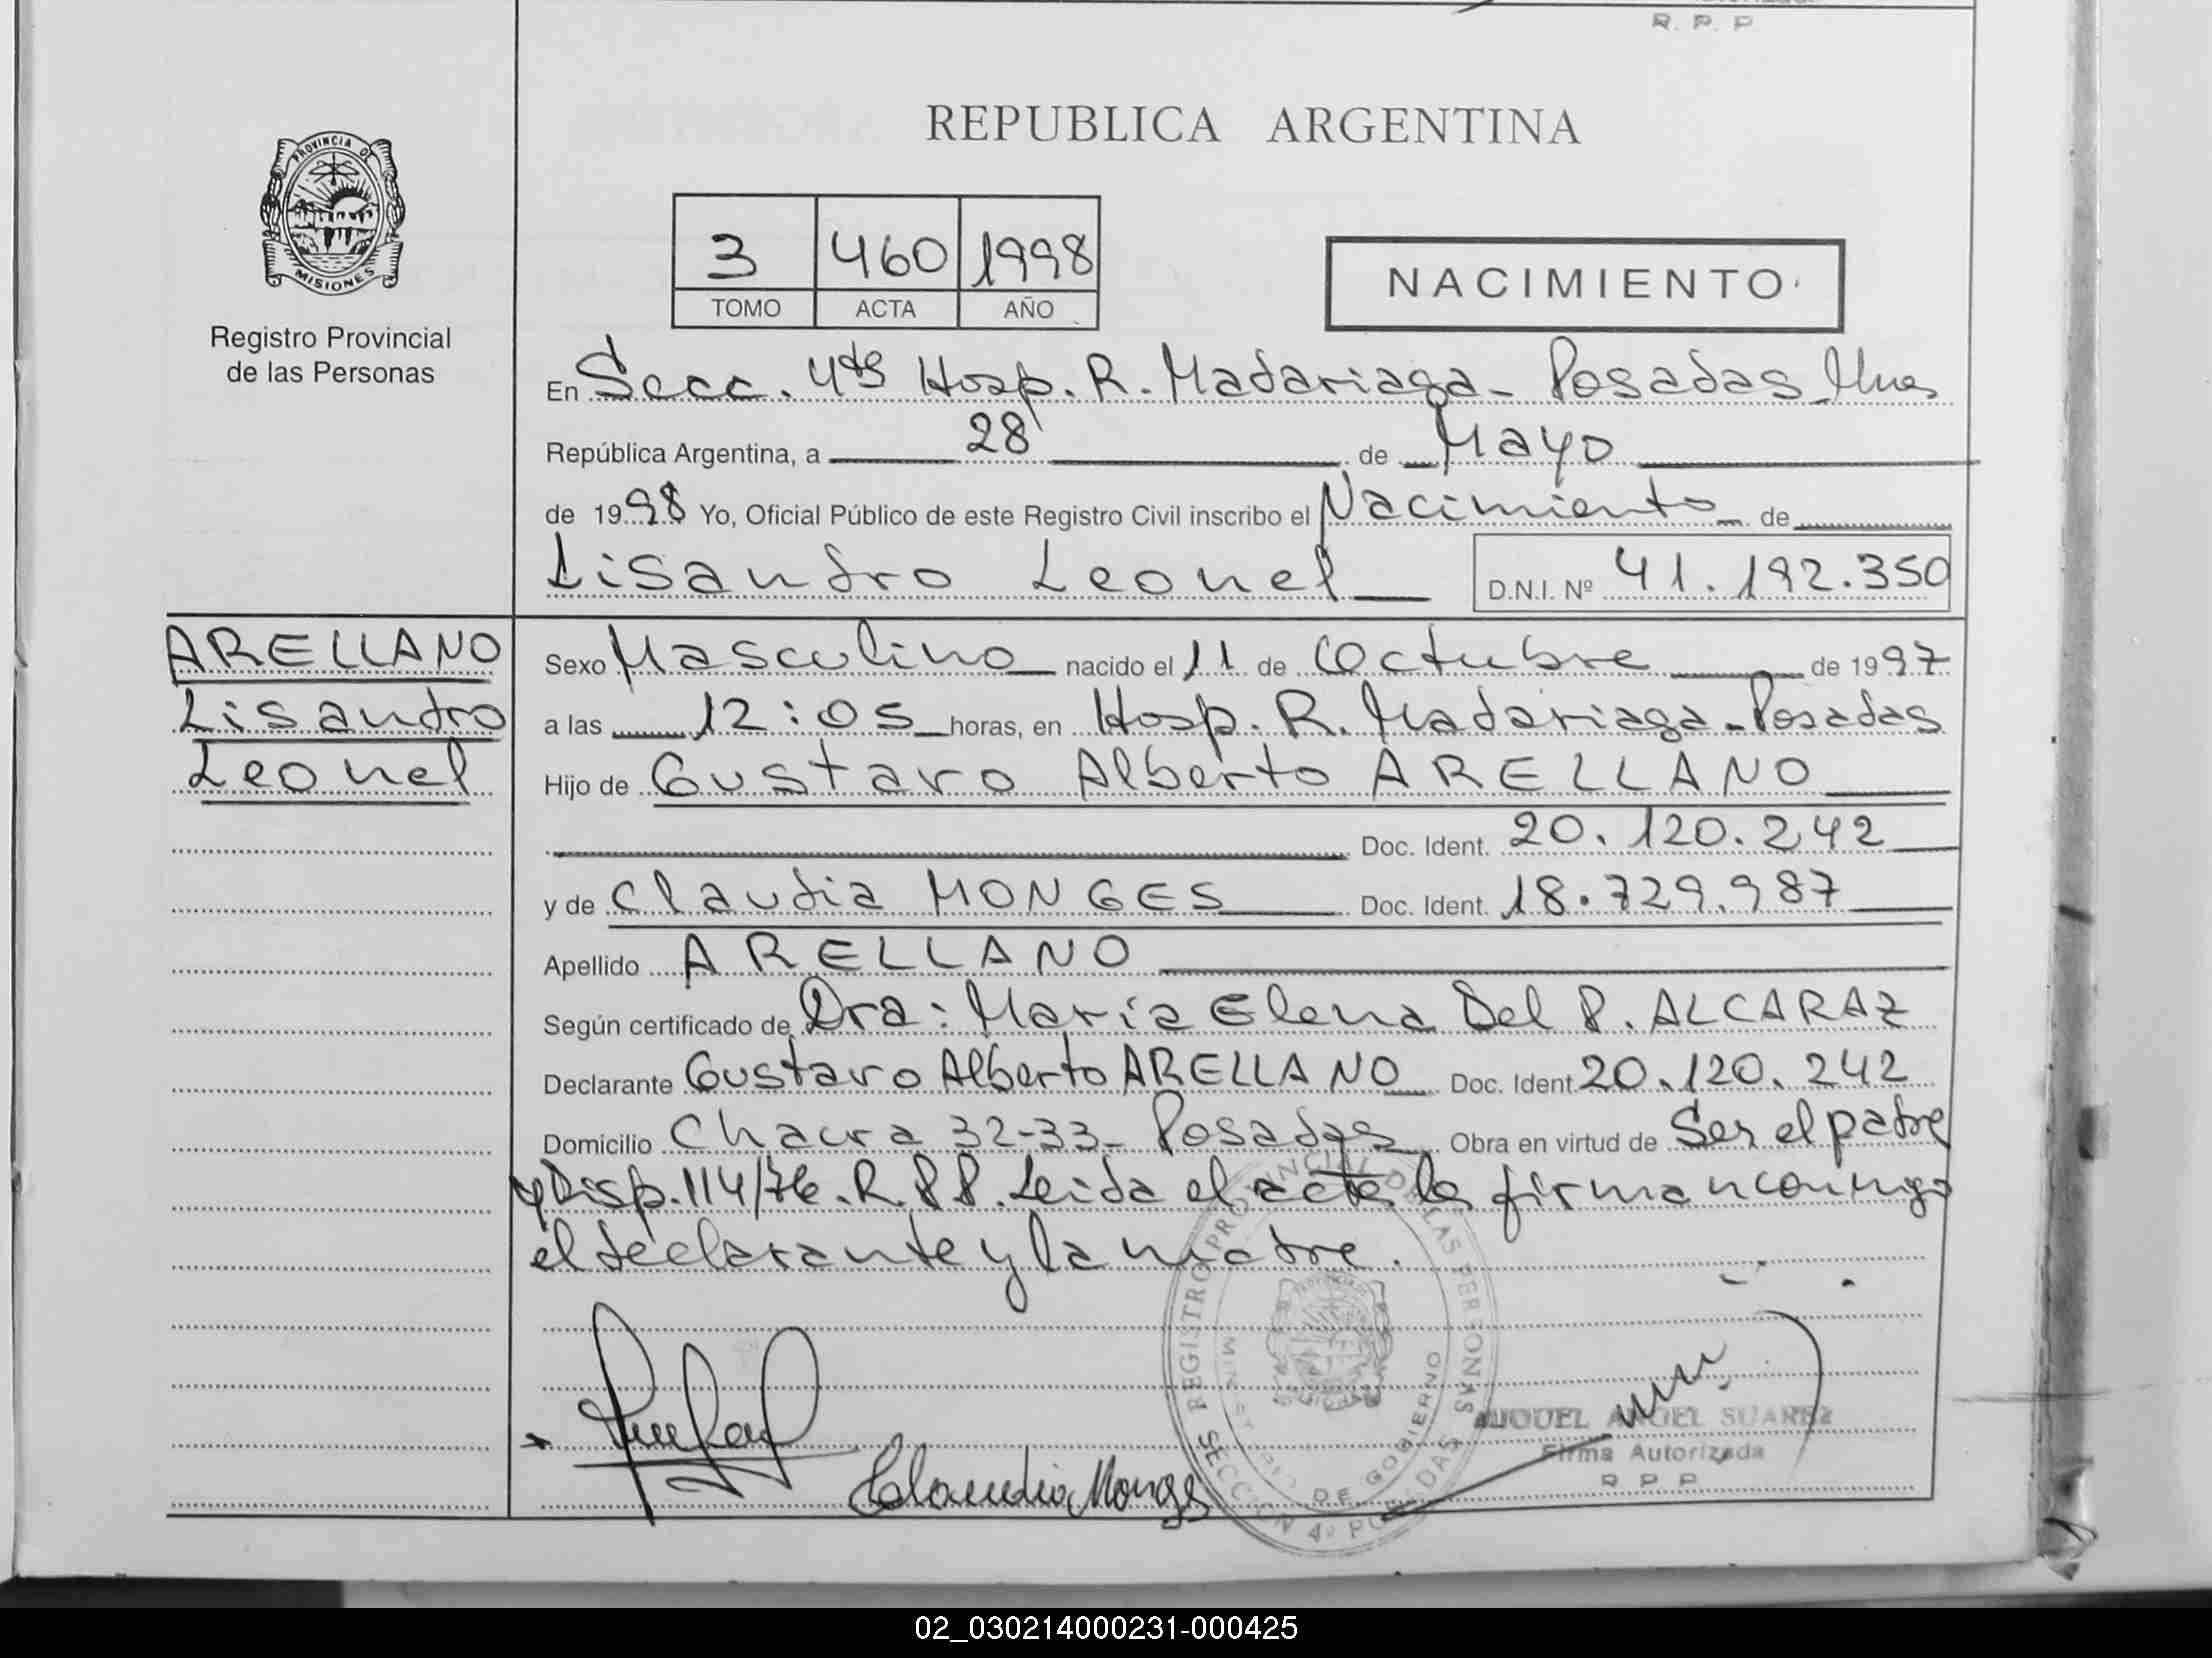 R. P. P
REPUBLICA ARGENTINA
PROVINCIA DE
MISIONES
Registro Provincial
de las Personas
3 460 1998
TOMO ACTA AÑO
NACIMIENTO
En Secc. 4ta Hosp. R. Madariaga - Posadas Mnes
República Argentina, a 28 de Mayo
de 1998 Yo, Oficial Público de este Registro Civil inscribo el Nacimiento de
Lisandro Leonel D.N.I. Nº 41.192.350
ARELLANO
Lisandro
Leonel
Sexo Masculino nacido el 11 de Octubre de 1997
a las 12:05 horas, en Hosp. R. Madariaga - Posadas
Hijo de Gustavo Alberto ARELLANO
Doc. Ident. 20.120.242
y de Claudia MONGES Doc. Ident. 18.729.987
Apellido ARELLANO
Según certificado de Dra: María Elena Del P. ALCARAZ
Declarante Gustavo Alberto ARELLANO Doc. Ident 20.120.242
Domicilio Chacra 32-33- Posadas Obra en virtud de Ser el padre
y Disp. 114/76. R.P.P. Leida el acta la firman conmigo
el declarante y la madre.
REGISTRO PROVINCIAL DE LAS PERSONAS
MINISTERIO DE GOBIERNO
SECCION 4º POSADAS
Claudia Monges
MIGUEL ANGEL SUAREZ
Firma Autorizada
R P P
02_030214000231-000425